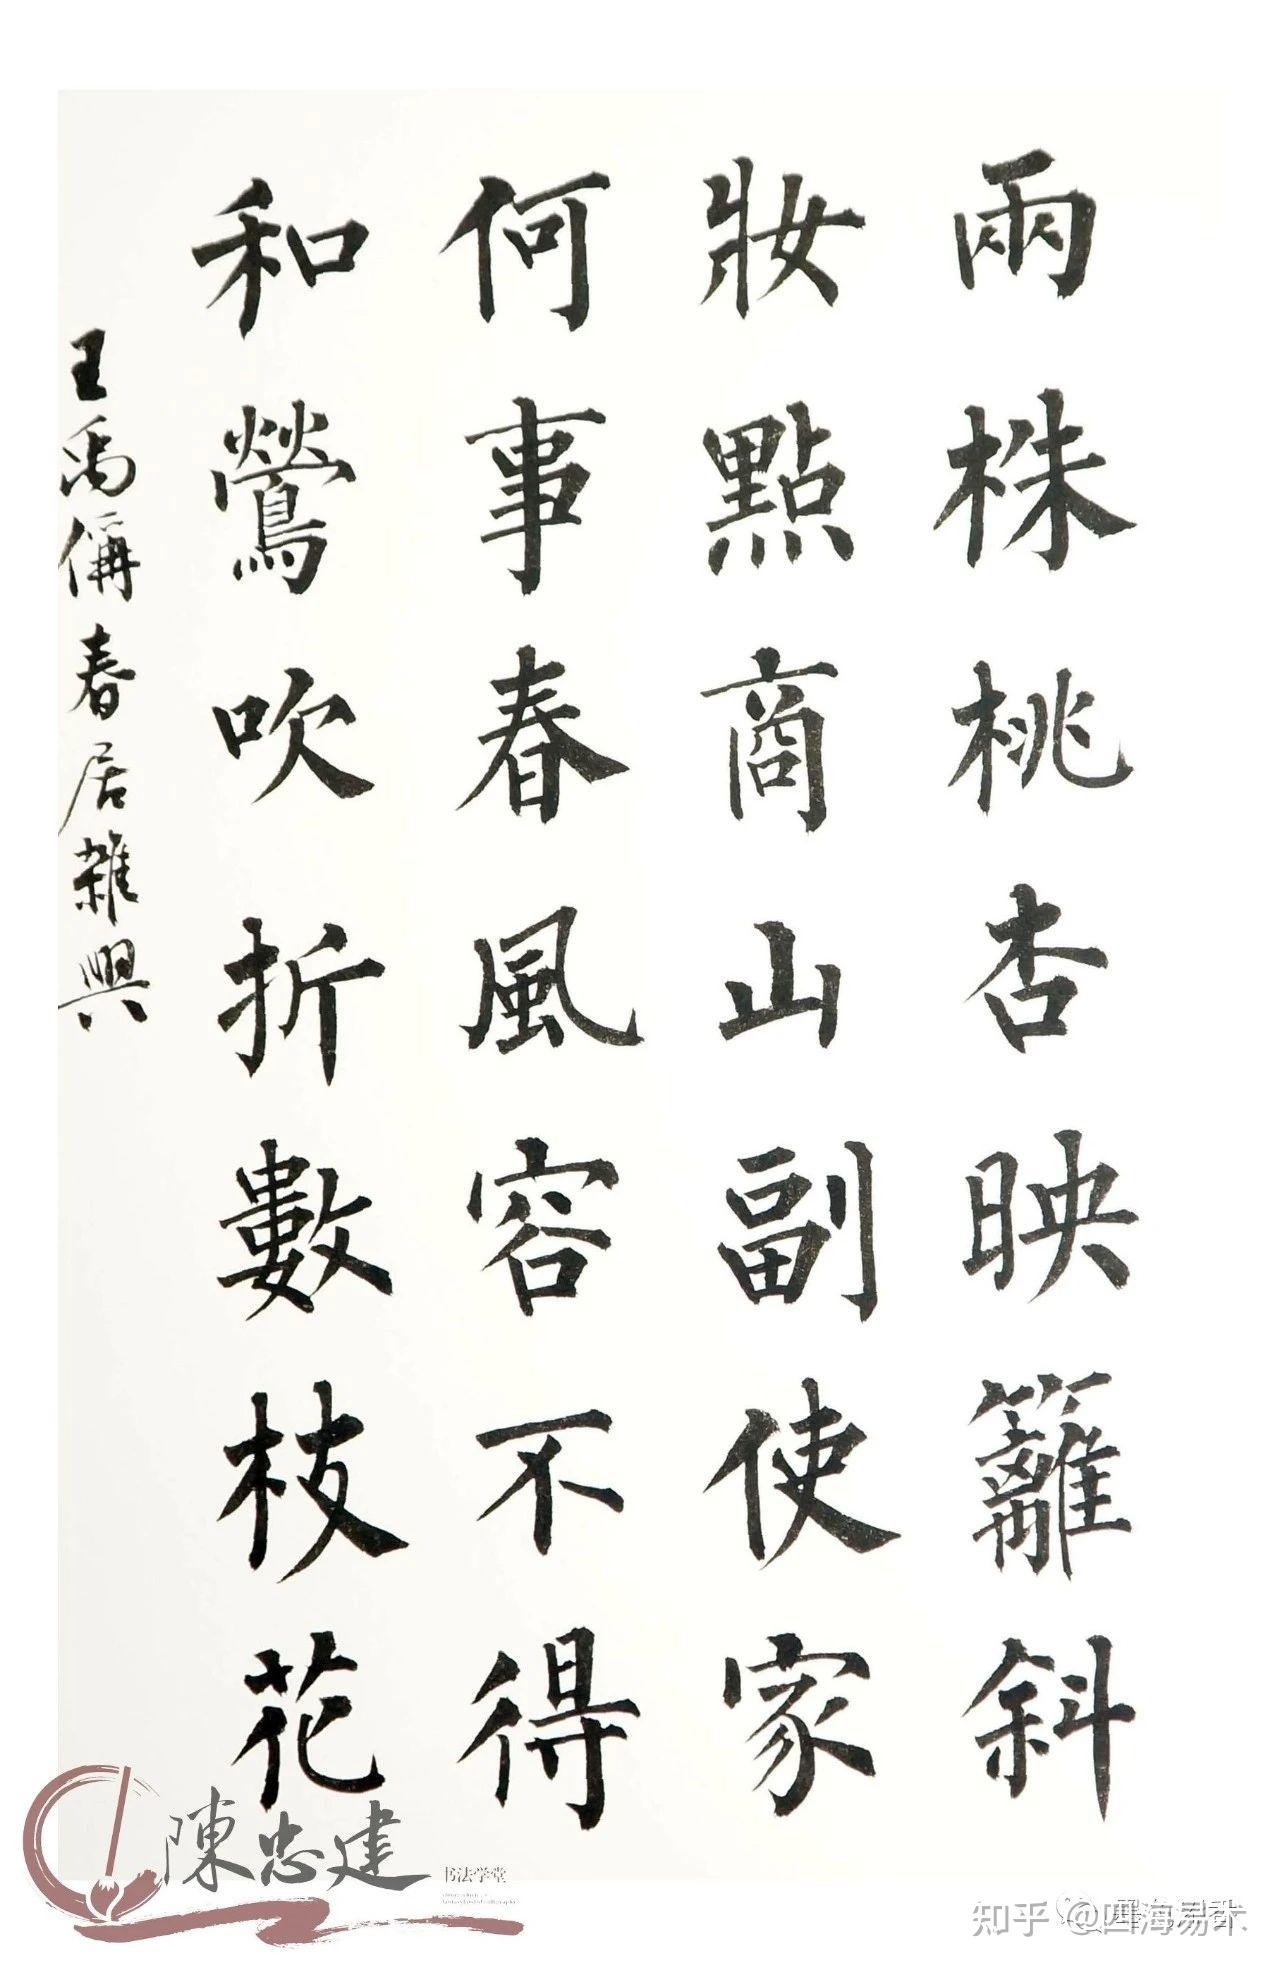 兩株桃杏映籬斜
妝點商山副使家
何事春風容不得
和鶯吹折數枝花
王禹偁春居雜興
陳忠建
书法学堂
知乎 @四海易术